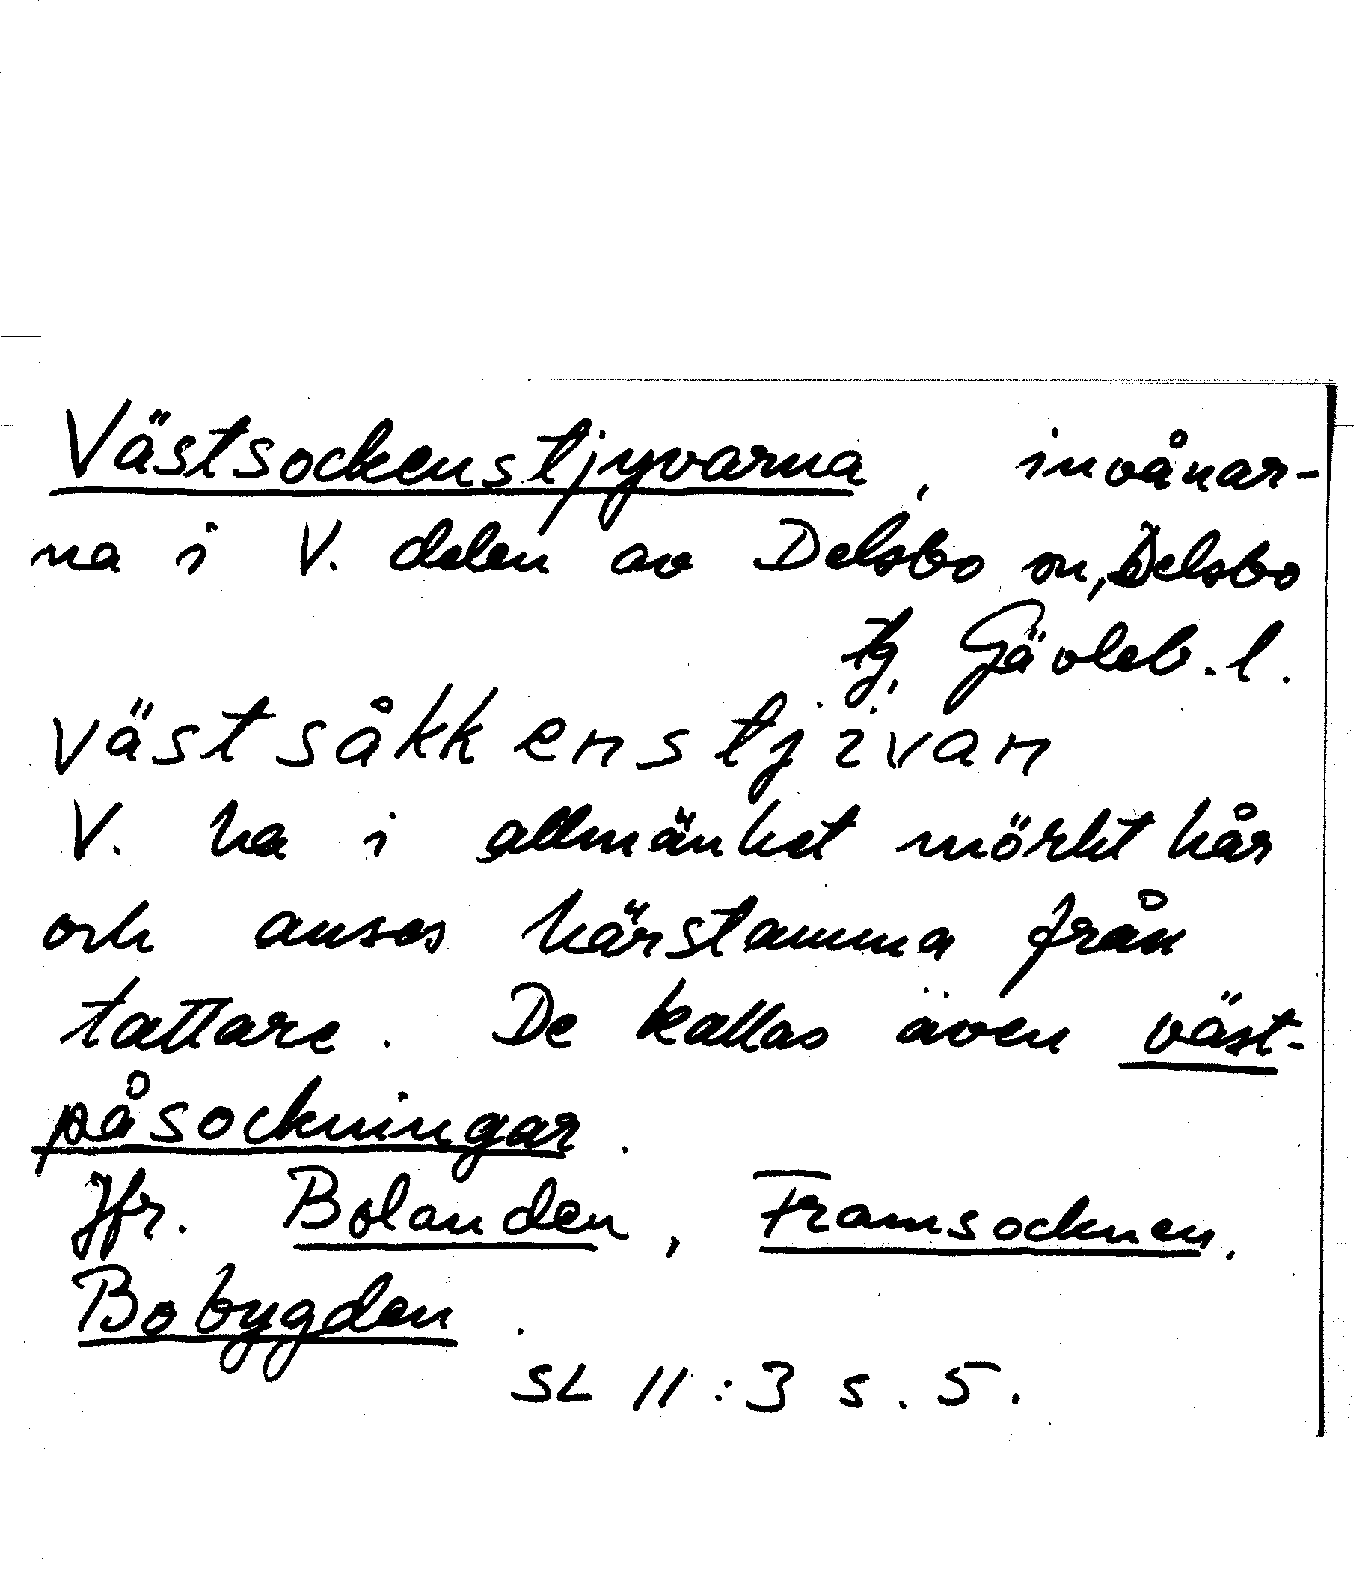 Västsockenstjyvarna, invånar-
na i V. delen av Delsbo sn, Delsbo
tg, Gävleb. l.
västsåkkenstjivan
V. ha i allmänhet mörkt hår
och anses härstamma från
tattare. De kallas även väst-
påsockningar.
Jfr. Bolanden, Framsocknen.
Bobygden.
SL 11:3 s. 5.